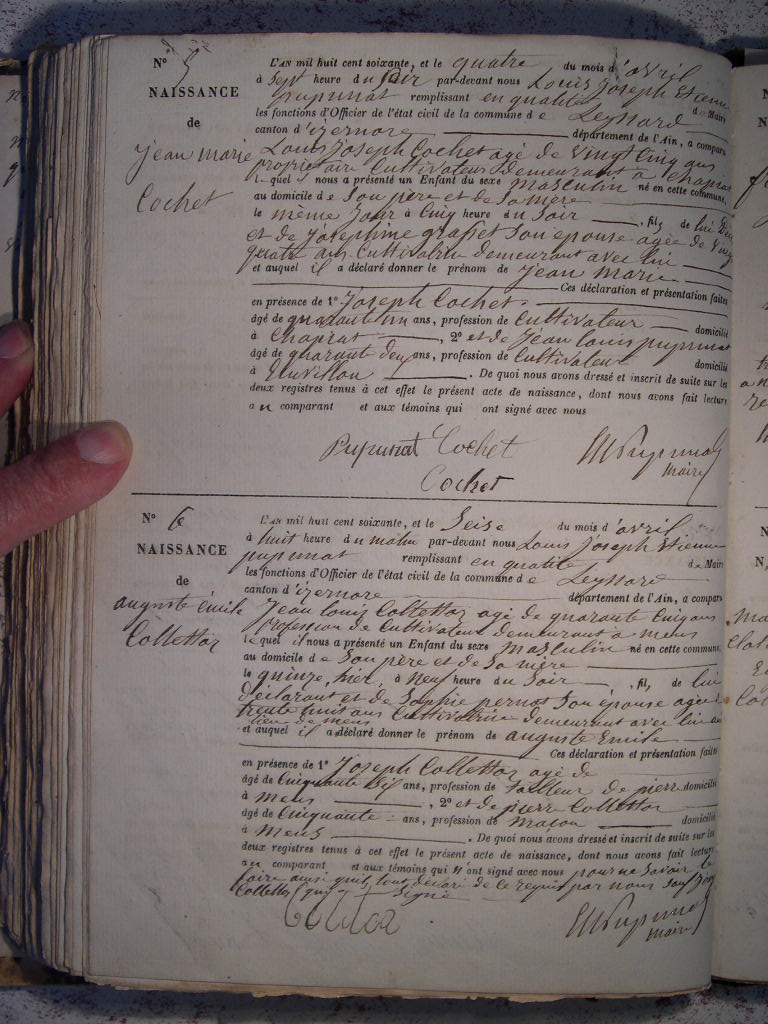 N° 5
NAISSANCE
de
Jean marie
Cochet
L'AN mil huit cent soixante, et le quatre du mois d'avril
à Sept heure du soir par-devant nous Louis Joseph Etienne
pupunat remplissant en qualité de Maire
les fonctions d'Officier de l'état civil de la commune de Leyssard
canton d'izernore département de l'Ain, a comparu
Louis Joseph Cochet agé de Vingt Cinq ans
proprietaire Cultivateur demeurant à Chaprat
lequel nous a présenté un Enfant du sexe masculin né en cette commune,
au domicile de Son père et de Sa mère
le même Jour à Cinq heure du Soir , fils de lui
et de Josephine grasset Son épouse agée de Vingt
quatre ans Cultivatrice demeurant avec lui
et auquel il a déclaré donner le prénom de Jean Marie
Ces déclaration et présentation faites
en présence de 1° Joseph Cochet
âgé de quarante un ans, profession de Cultivateur domicilié
à Chaprat , 2° et de Jean Louis pupunat
âgé de quarant deux ans, profession de Cultivateur domicilié
à . De quoi nous avons dressé et inscrit de suite sur les
deux registres tenus à cet effet le présent acte de naissance, dont nous avons fait lecture
au comparant et aux témoins qui ont signé avec nous
Pupunat Cochet
Pupunat
maire
Cochet
N° 6
NAISSANCE
de
auguste émile
Collettaz
L'AN mil huit cent soixante, et le Seise du mois d'avril
à huit heure du matin par-devant nous Louis Joseph Etienne
pupunat remplissant en qualité de Maire
les fonctions d'Officier de l'état civil de la commune de Leyssard
canton d'izernore département de l'Ain, a comparu
Jean Louis Collettaz agé de quarante Cinq ans
profession de Cultivateur demeurant à mens
lequel il nous a présenté un Enfant du sexe masculin né en cette commune,
au domicile de Son père et de Sa mère
le quinze, hier, à neuf heure du Soir , fils de lui
déclarant et de Sophie pernod Son épouse agée de
trente huit ans Cultivatrice demeurant avec lui au
lieu de mens
et auquel il a déclaré donner le prénom de auguste Emile
Ces déclaration et présentation faites
en présence de 1° Joseph Collettaz agé de
âgé de Cinquante Six ans, profession de tailleur de pierre domicilié
à mens , 2° et de pierre Collettaz
âgé de Cinquante ans, profession de Maçon domicilié
à Mens . De quoi nous avons dressé et inscrit de suite sur les
deux registres tenus à cet effet le présent acte de naissance, dont nous avons fait lecture
au comparant et aux témoins qui n'ont signé avec nous pour ne Savoir le
faire ainsi qu'ils l'ont déclaré de ce requis par nous sauf Joseph
Collettaz qui a Signé
Collettaz
Pupunat
maire